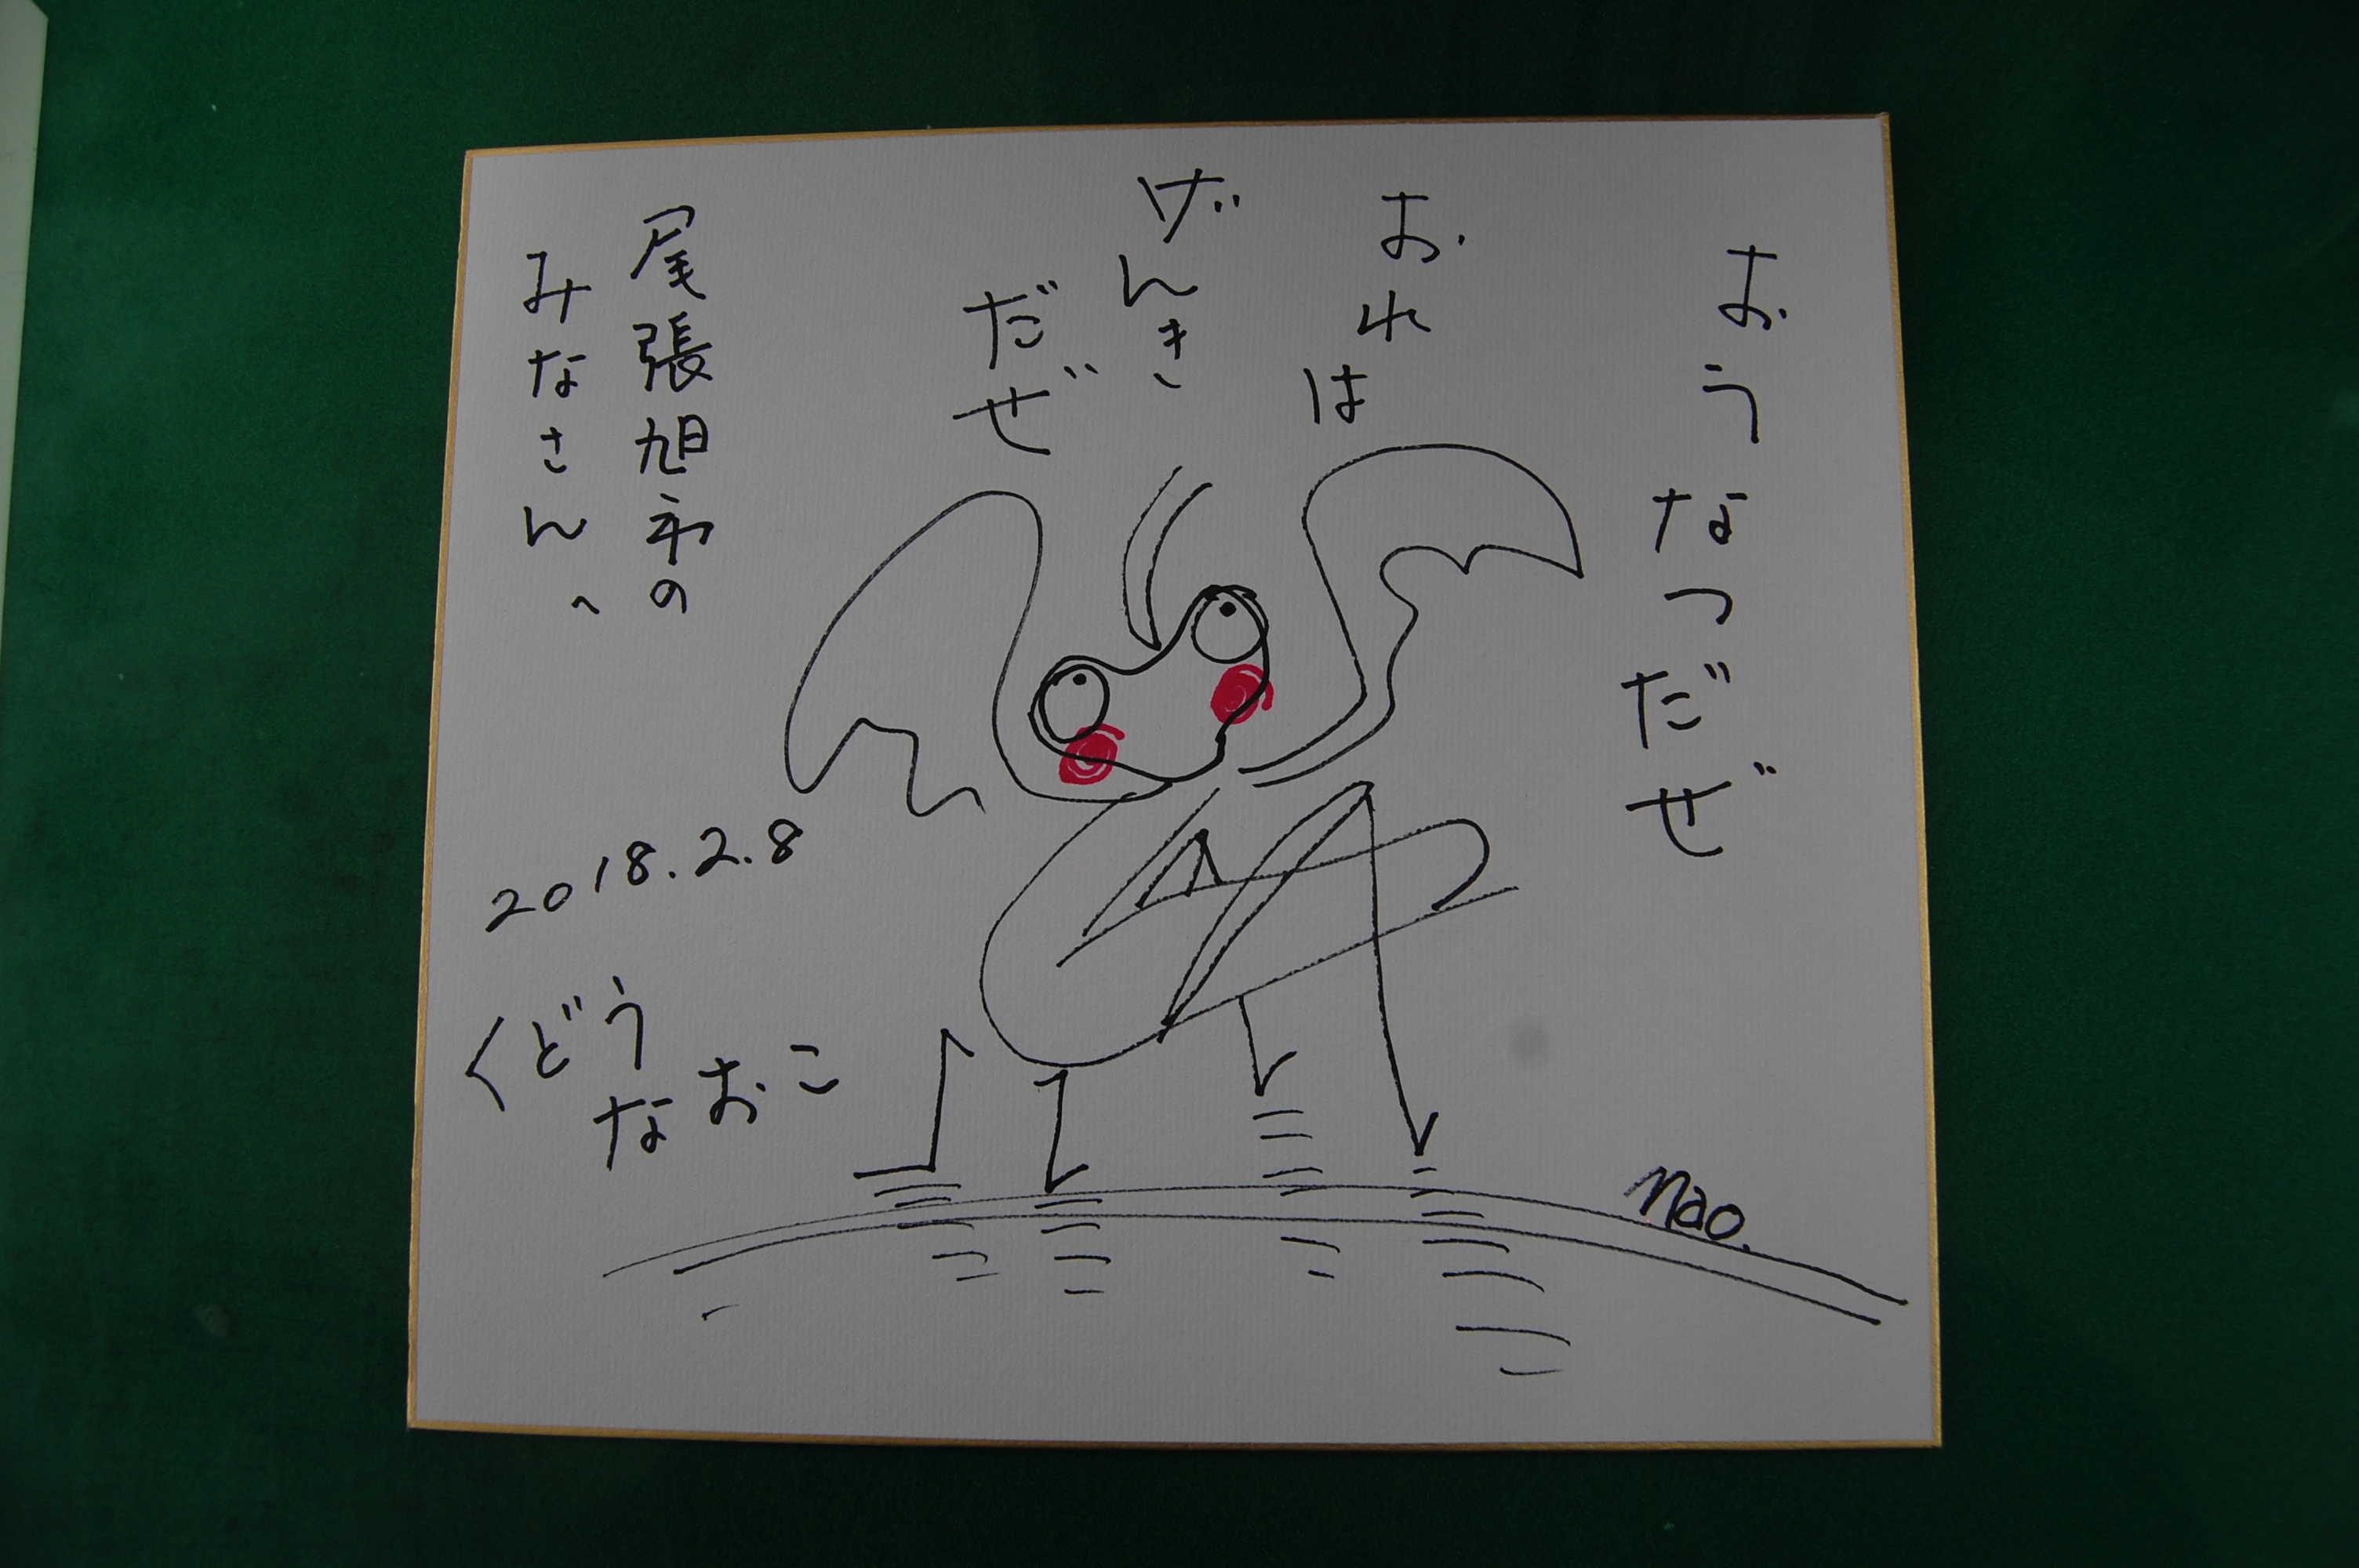 おうなつだぜ
おれは
げんき
だぜ
尾張旭市の
みなさんへ
2018.2.8
くどう
なおこ
nao.